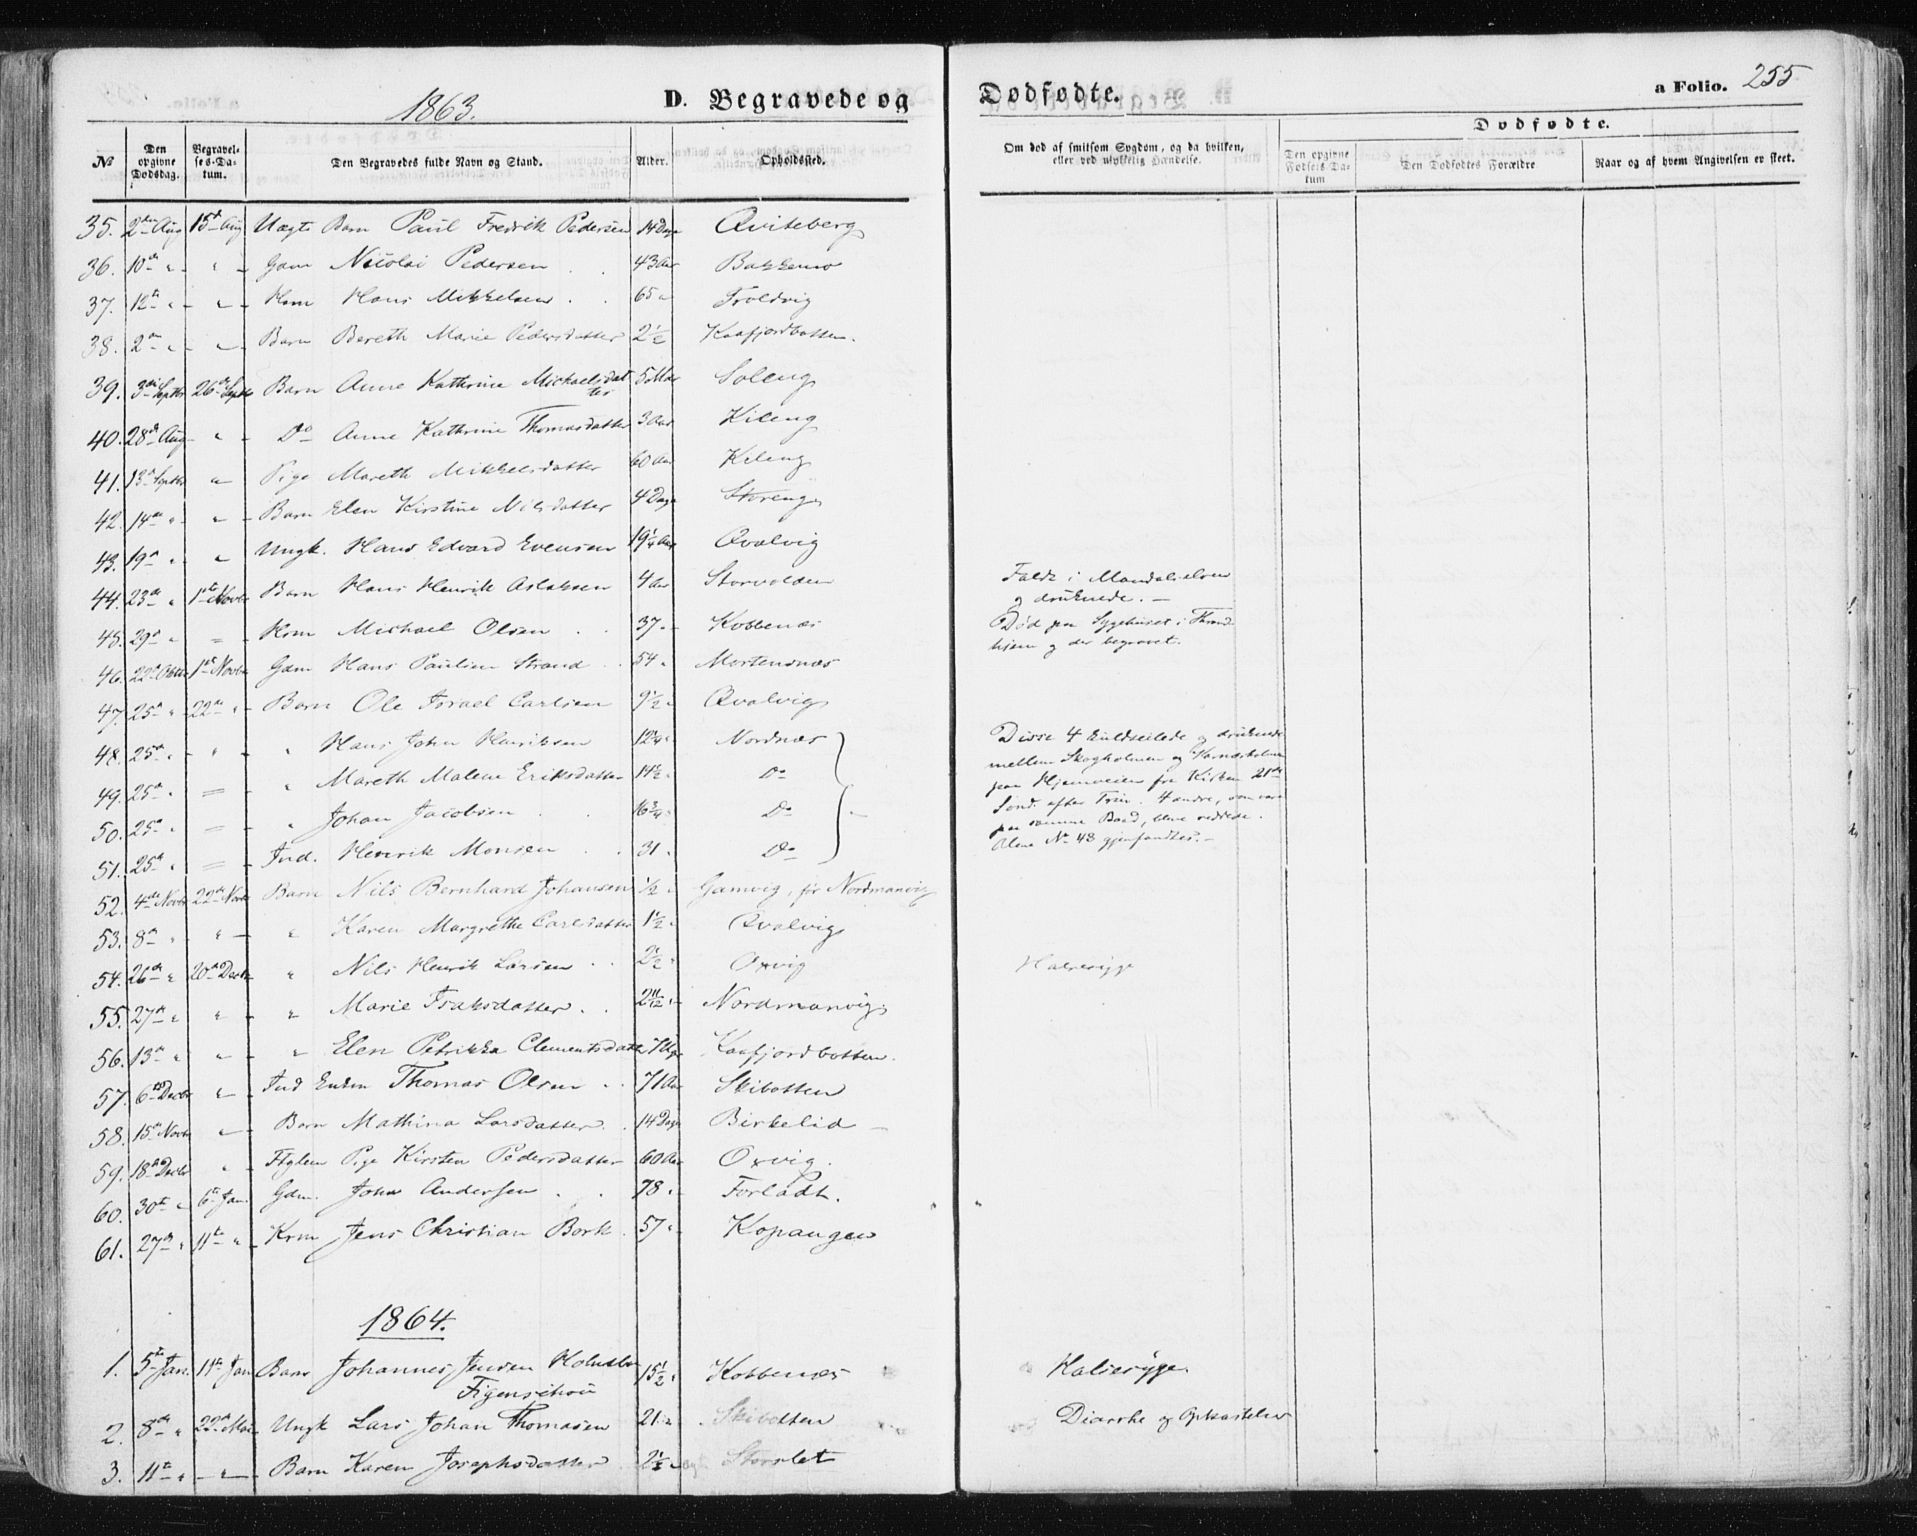 1863.
D. Begravede og Dødfødte.
a Folio. 255
No
Den opgivne Dødsdag.
Begravelses-Datum.
Den Begravedes fulde Navn og Stand.
Alder.
Opholdssted.
Om død af smitsom Sygdom, og da hvilken, eller ved ulykkelig Hændelse.
Dødfødte.
Den opgivne Fødsels-Datum
Den Dødfødtes Forældre
Naar og af hvem Angivelsen er skeet.
35. 2den Aug 15de Aug Uægte Barn Paul Fredrik Pedersen 14 Dage Qviteberg
36. 10de " " Gdm Nicolai Pedersen 43 Aar Bakkemo
37. 12te " " Hsm Hans Mikkelsen 65 " Troldvig
38. 2den " " Barn Bereth Marie Pedersdatter 2½ Kaafjordbotten.
39. 3die Septbr 26de Septbr Barn Anne Kathrine Michaelsdatter 5 Mdr Soleng
40. 28de Aug " Do Anne Kathrine Thomasdatter 3 Aar Kileng
41. 13de Septbr " Pige Mareth Mikkelsdatter 60 Aar Kileng
42. 14de " " Barn Elen Kirstine Nilsdatter 4 Dage Storeng
43. 19de " " Ungk. Hans Edvard Evensen 19¼ Aar Qvalvig
44. 23de " 1ste Novbr Barn Hans Henrik Aslaksen 4 Aar Storvolden Faldt i Mandalselven
og druknede. —
45. 29de " = Hsm Michael Olsen 37 " Kobbenæs Død paa Sygehuset i Thrond-
hjem og der begravet.
46. 22de Octbr 1ste Novbr Gdm Hans Paulsen Strand 54 " Mortensnæs
47. 25de " 22de " Barn Ole Israel Carlsen 9½ " Qvalvig
48. 25de " " " Hans John Henriksen 12¾ " Nordnæs Disse 4 kuldseilede og druknede
49. 25de " = " Mareth Malene Eriksdatter 14½ " Do mellem Skogholmen og
paa Hjemveien fra Kirken 21de
50. 25de " = " Johan Jacobsen 16¾ " Do Sønd. efter Trin. 4 andre, som vare
paa samme Baad, bleve reddede.
51. 25de " = Ind. Henrik Monsen 31 " Do Alene No 48 gjenfandtes. —
52. 4de Novbr 22de Novbr Barn Nils Bernhard Johansen ½ " Gamvig, før Nordmanvig
53. 8de " " " Karen Margrethe Carlsdatter 1½ " Qvalvig
54. 26de " 20de Decbr " Nils Henrik Larsen Oxvig Halsesyge
55. 27de " " " Marie Isaksdatter 2 11/12 " Nordmanvig
56. 13de " " " Elen Petrikka Clementsdatter 7 Uger Kaafjordbotten.
57. 6te Decbr " Ind Enkm Thomas Olsen 71 Aar Skibotten
58. 15de Novbr " Barn Mathina Larsdatter 14 Dage Birkelid
59. 18de Decbr " Ftglem Pige Kirsten Pedersdatter 60 Aar Oxvig.
60. 30te " 6te Jan. Gdm. John Andersen 78 " Forladt.
61. 27de " 11te " Krm Jens Christian Bork 57 " Kopangen
1864.
1. 5te Jan. 11te Jan Barn Johannes Jensen Holmboe
Figenschou 15½ " Kobbenæs Halsesyge.
2. 8de " 22de Mai Ungk Lars Johan Thomasen 21 " Skibotten Diarrhe og Opkastelse
3. 11te " " Barn Karen Josephsdatter Storslet